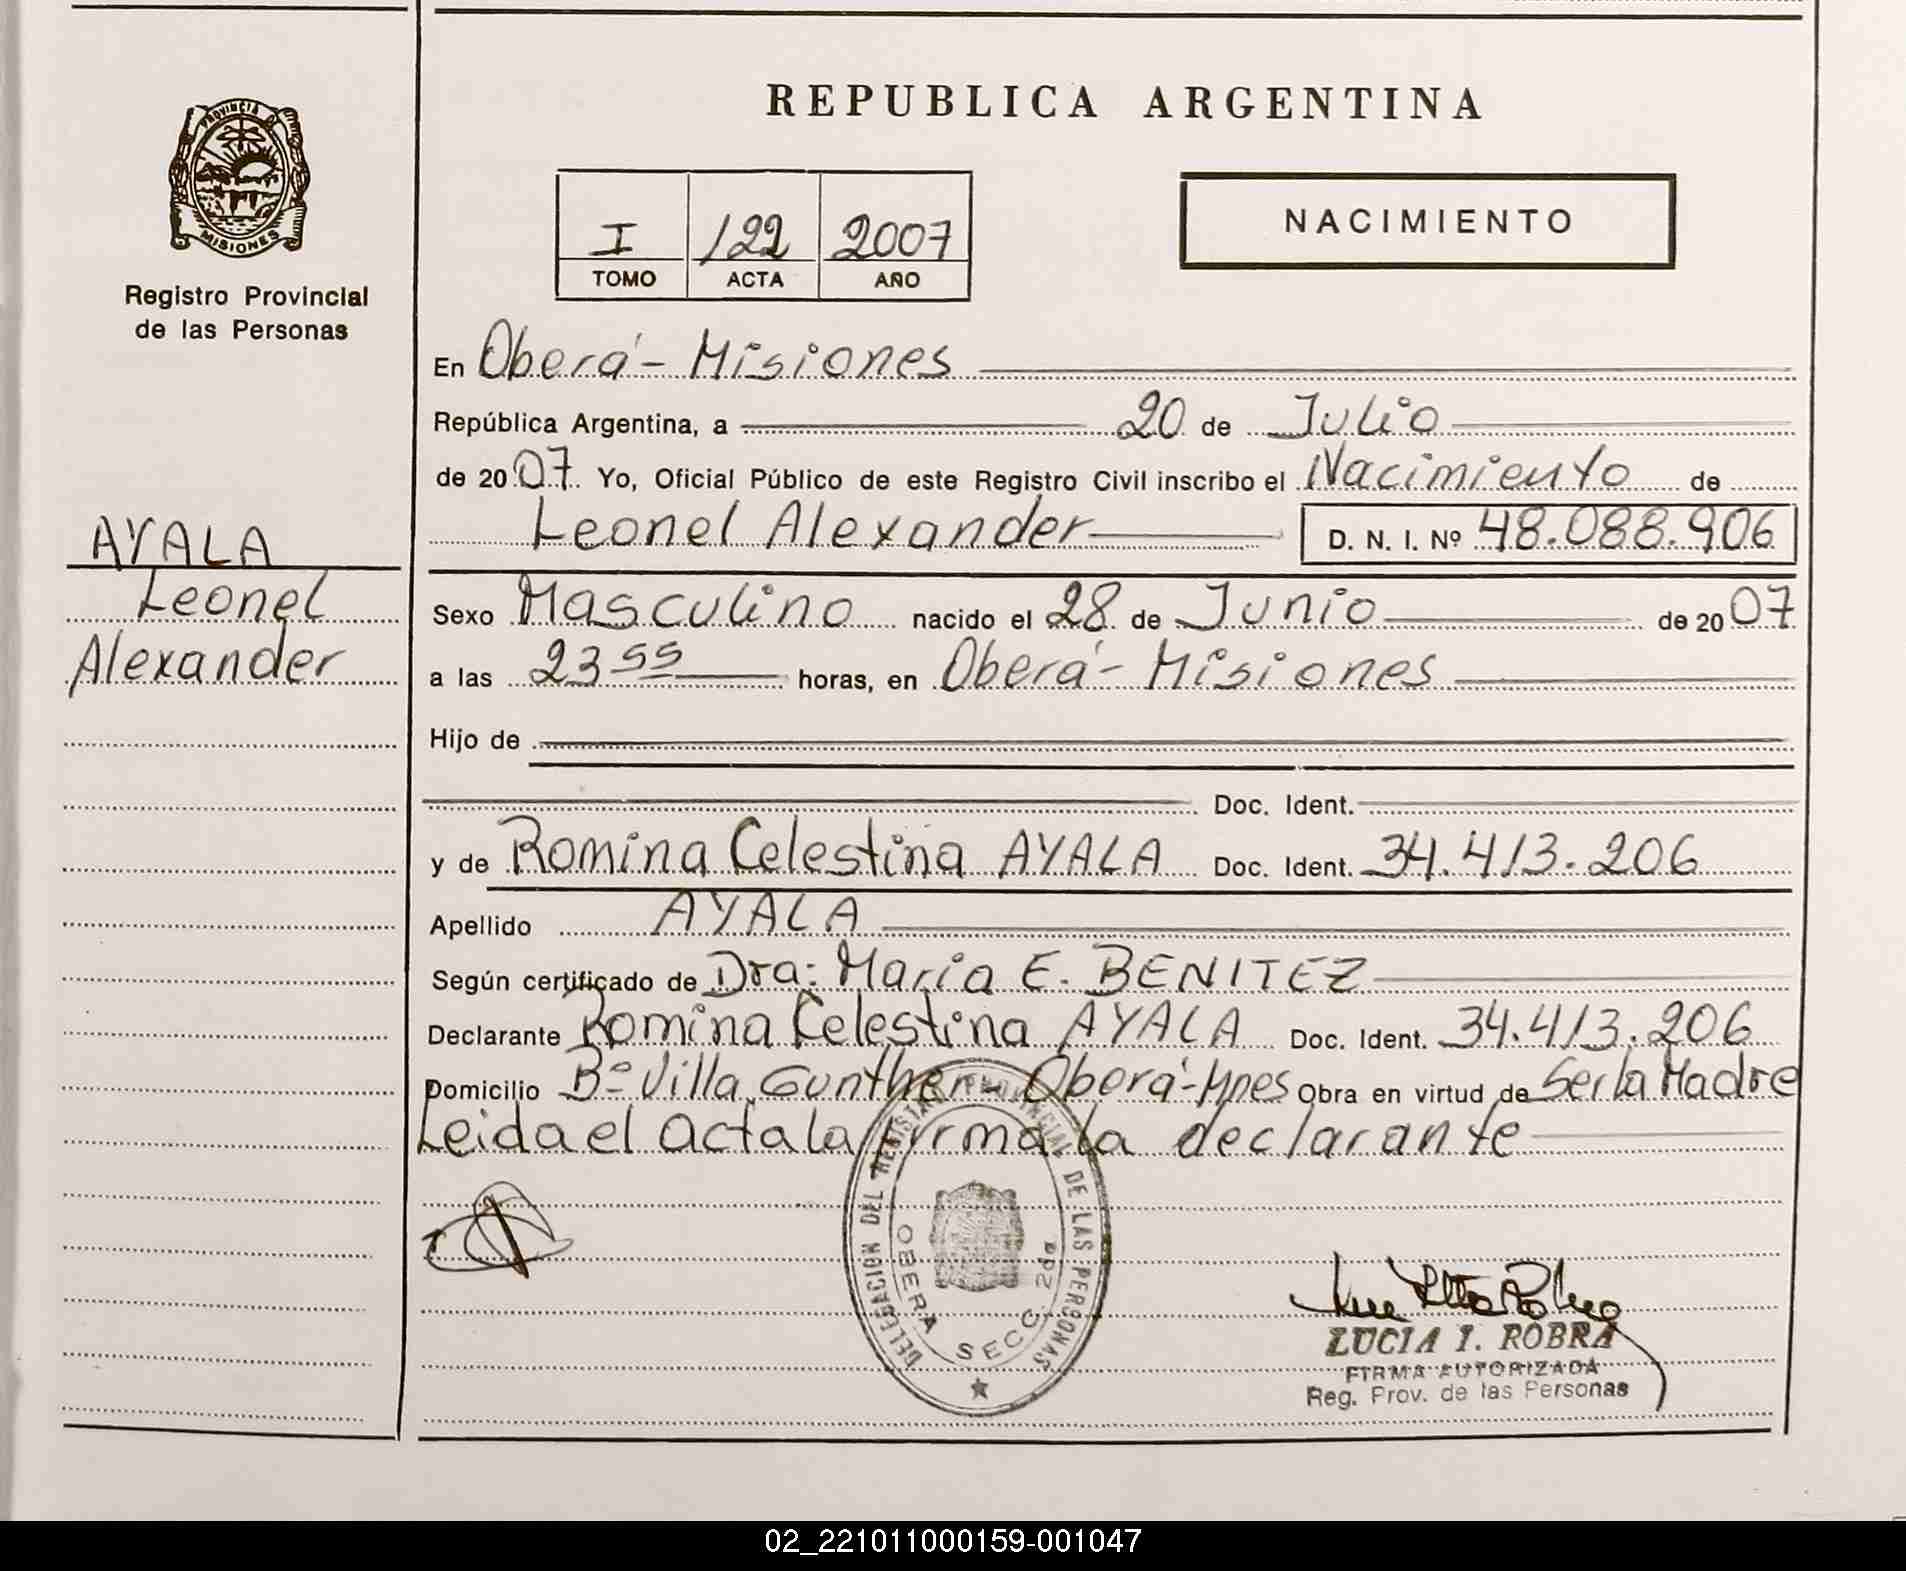 REPUBLICA ARGENTINA
PROVINCIA DE
MISIONES
Registro Provincial
de las Personas
I 122 2007
TOMO ACTA AÑO
NACIMIENTO
En Oberá - Misiones
República Argentina, a 20 de Julio
de 2007 Yo, Oficial Público de este Registro Civil inscribo el Nacimiento de
Leonel Alexander D. N. I. Nº 48.088.906
AYALA
Leonel
Alexander
Sexo Masculino nacido el 28 de Junio de 2007
a las 23 55 horas, en Oberá - Misiones
Hijo de
Doc. Ident.
y de Romina Celestina AYALA Doc. Ident. 34.413.206
Apellido AYALA
Según certificado de Dra: María E. BENITEZ
Declarante Romina Celestina AYALA Doc. Ident. 34.413.206
Domicilio Bº Villa Gunther - Oberá - Mnes Obra en virtud de Ser la Madre
Leida el acta la firma la declarante
DELEGACION DEL REGISTRO PROVINCIAL DE LAS PERSONAS
OBERA SECC. 2da
LUCIA I. ROBRA
FIRMA AUTORIZADA
Reg. Prov. de las Personas
02_221011000159-001047